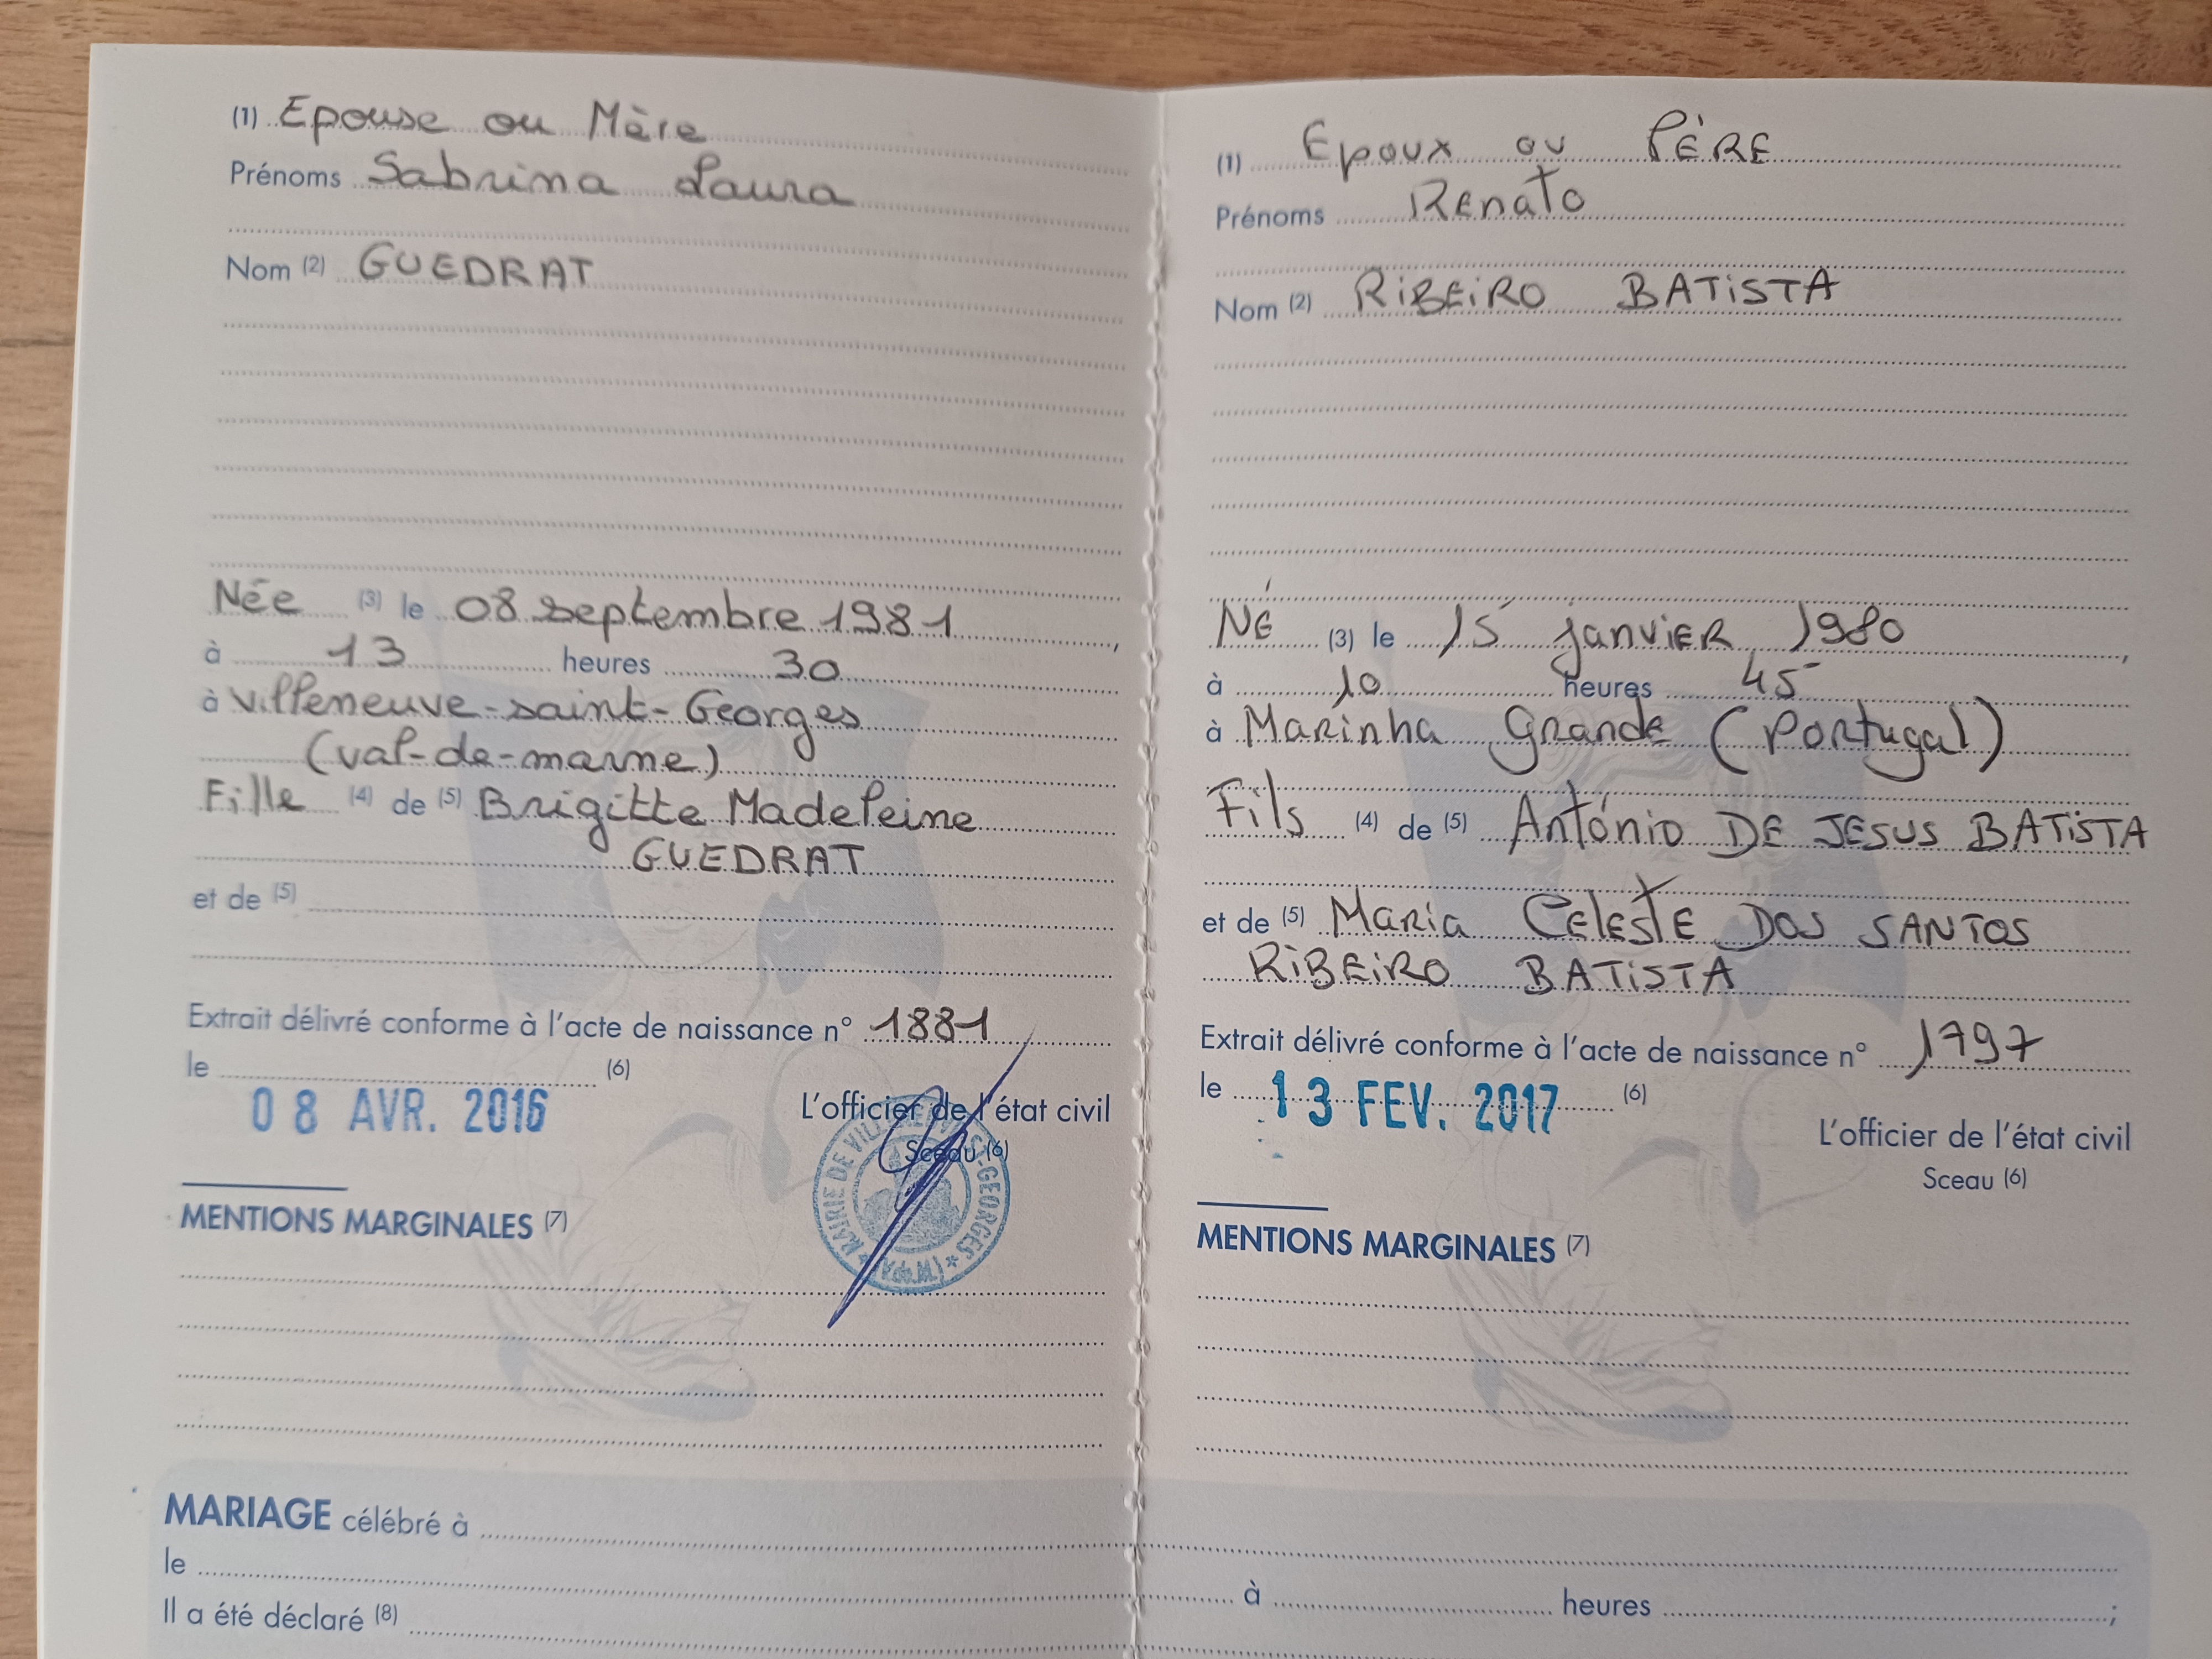 (1) Epouse ou Mère
Prénoms Sabrina Laura
Nom (2) GUEDRAT
Née (3) le 08 septembre 1981,
à 13 heures 30
à Villeneuve-saint-Georges
(val-de-marne)
Fille (4) de (5) Brigitte Madeleine
GUEDRAT
et de (5)
Extrait délivré conforme à l'acte de naissance n° 1881
le (6)
08 AVR. 2016
L'officier de l'état civil
Sceau (6)
MAIRIE DE VILLENEUVE-ST-GEORGES (V.de.M.)
MENTIONS MARGINALES (7)
(1) Epoux ou PÈRE
Prénoms Renato
Nom (2) RiBEiRO BATiSTA
NÉ (3) le 15 janViER 1980,
à 10 heures 45
à Marinha Grande (Portugal)
Fils (4) de (5) António DE JESUS BATiSTA
et de (5) Maria CELESTE DOS SANTOS
RiBEiRO BATiSTA
Extrait délivré conforme à l'acte de naissance n° 1797
le 13 FEV. 2017 (6)
L'officier de l'état civil
Sceau (6)
MENTIONS MARGINALES (7)
MARIAGE célébré à
le à heures ;
Il a été déclaré (8)